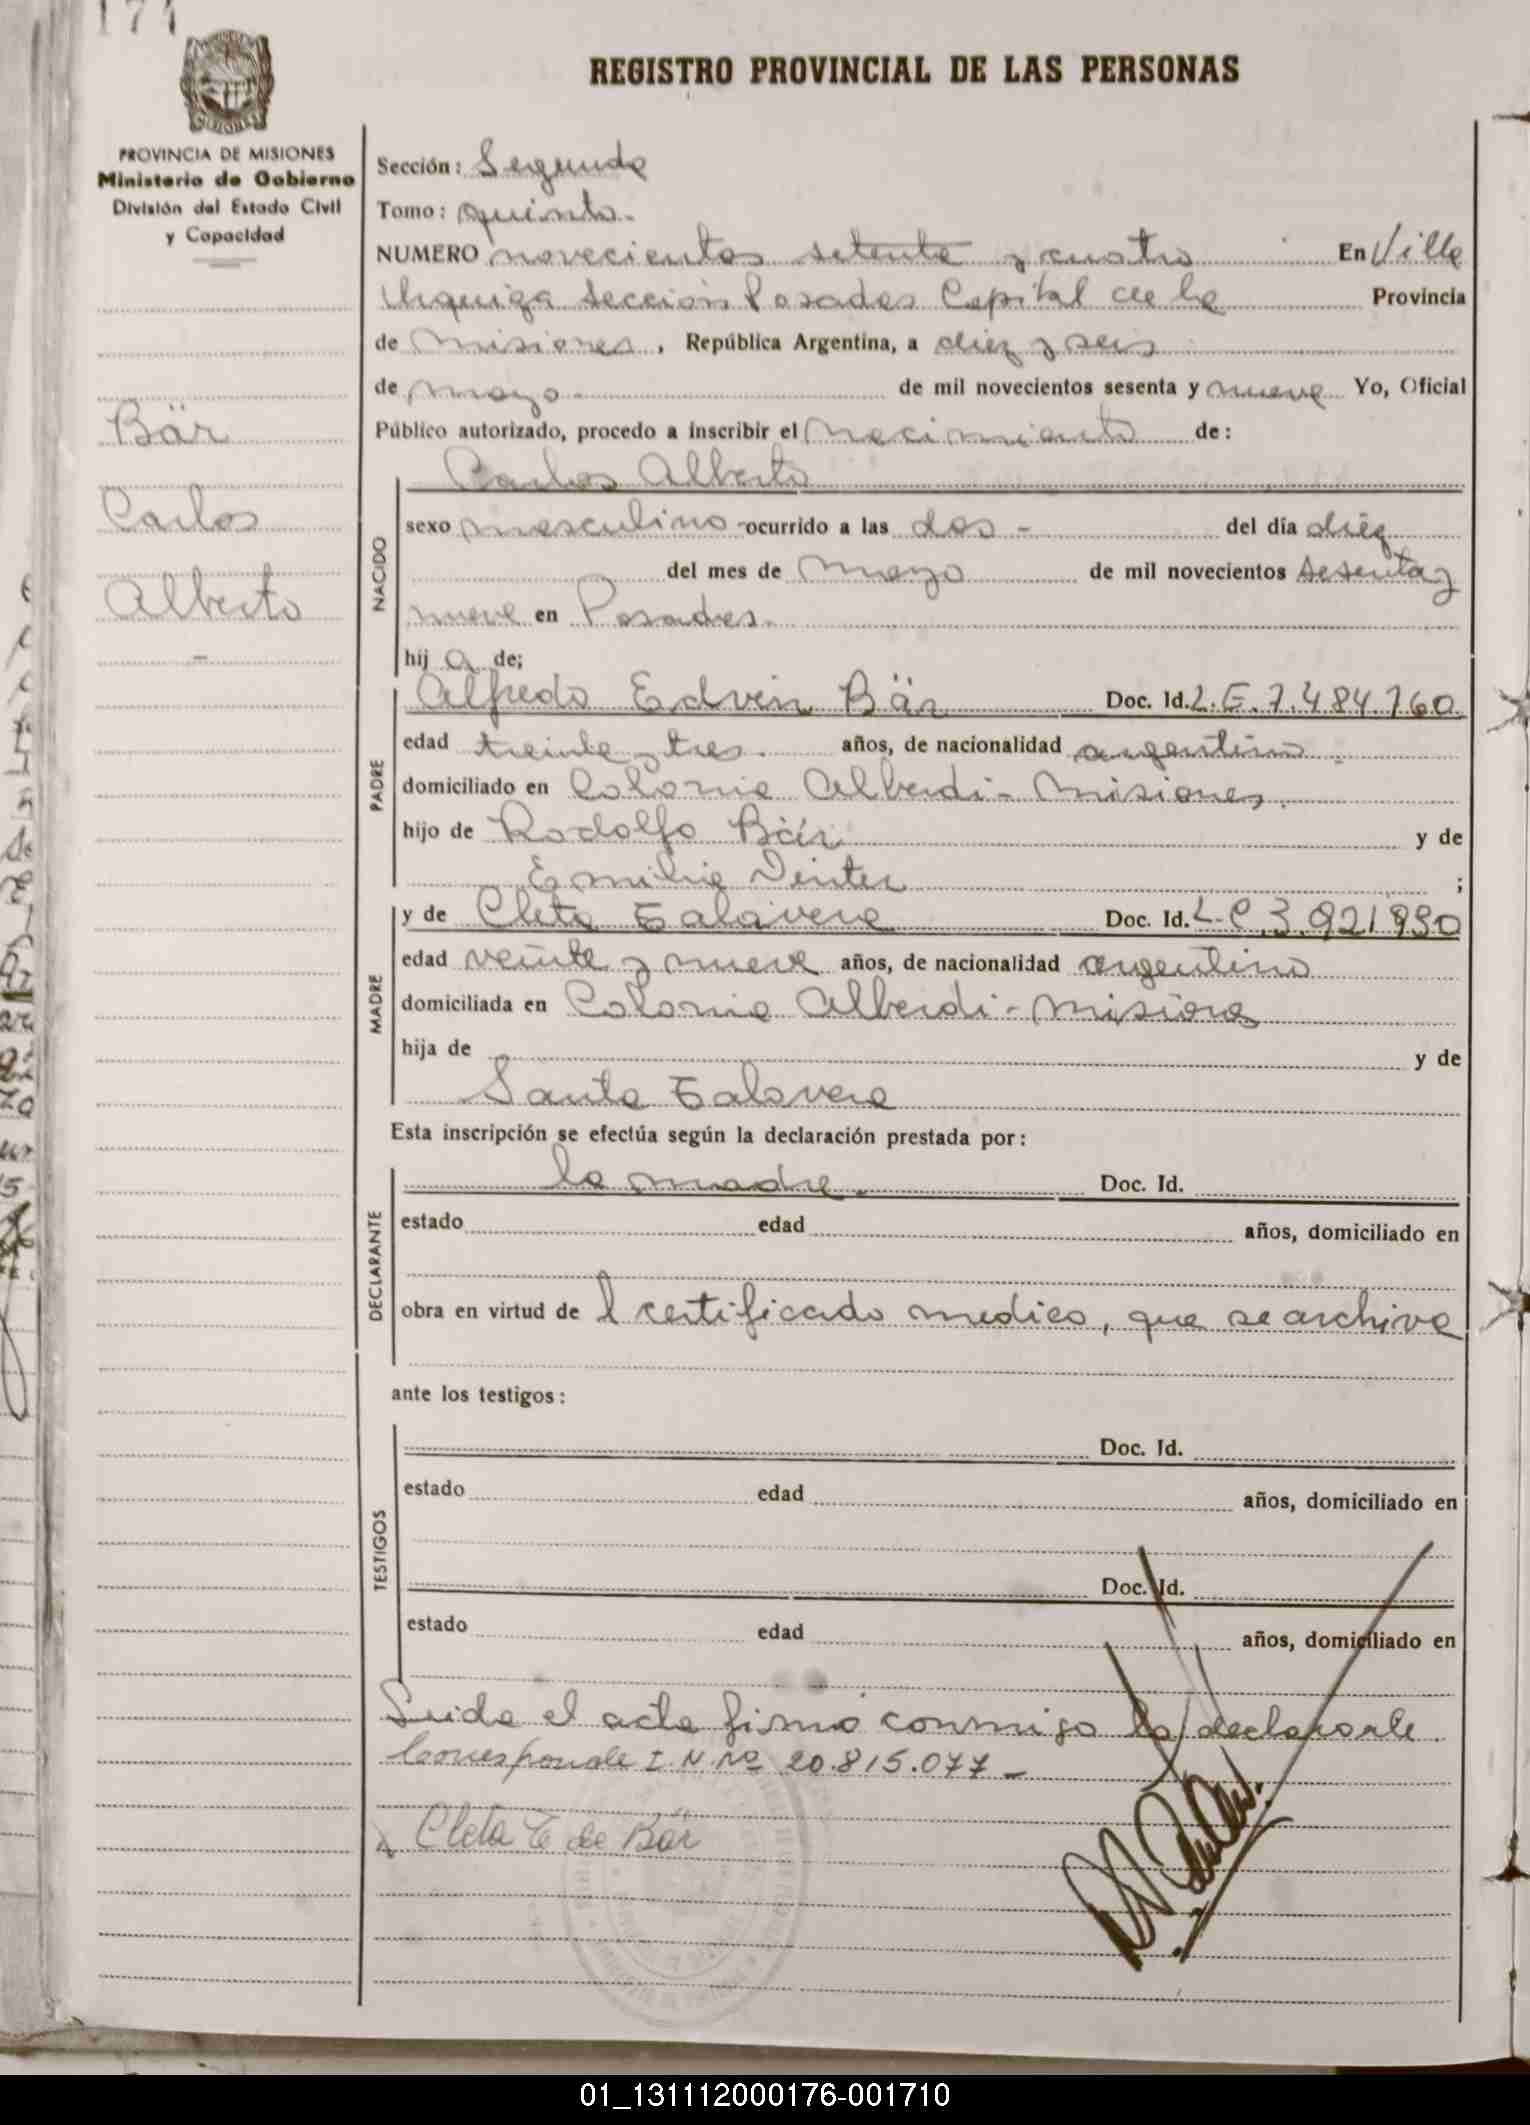 174
REGISTRO PROVINCIAL DE LAS PERSONAS
PROVINCIA DE MISIONES
Ministerio de Gobierno
División del Estado Civil
y Capacidad
Bär
Carlos
Alberto
Sección: Segunda
Tomo: quinto.
NUMERO novecientos setenta y cuatro En Villa
Urquiza Sección Posadas Capital de la Provincia
de Misiones, República Argentina, a diez y seis
de mayo de mil novecientos sesenta y nueve Yo, Oficial
Público autorizado, procedo a inscribir el nacimiento de:
Carlos Alberto
NACIDO
sexo masculino ocurrido a las dos - del día diez
del mes de mayo de mil novecientos sesenta y
nueve en Posadas.
hij o de;
PADRE
Alfredo Edvin Bär Doc. Id. L.E. 7.484.760
edad treinta y tres. años, de nacionalidad argentino
domiciliado en Colonia Alberdi - Misiones.
hijo de Rodolfo Bär y de
Emilia Dinter ;
MADRE
y de Cleta Talavera Doc. Id. L.C 3.921990
edad veinte y nueve años, de nacionalidad argentino
domiciliada en Colonia Alberdi - Misiones
hija de y de
Santa Talavera
Esta inscripción se efectúa según la declaración prestada por:
DECLARANTE
la madre. Doc. Id.
estado edad años, domiciliado en
obra en virtud de l certificado medico, que se archiva
ante los testigos:
TESTIGOS
Doc. Id.
estado edad años, domiciliado en
Doc. Id.
estado edad años, domiciliado en
Leida el acta firmó conmigo la declarante.
Corresponde I. N. Nº 20.815.077 -
Cleta T de Bär
01_131112000176-001710